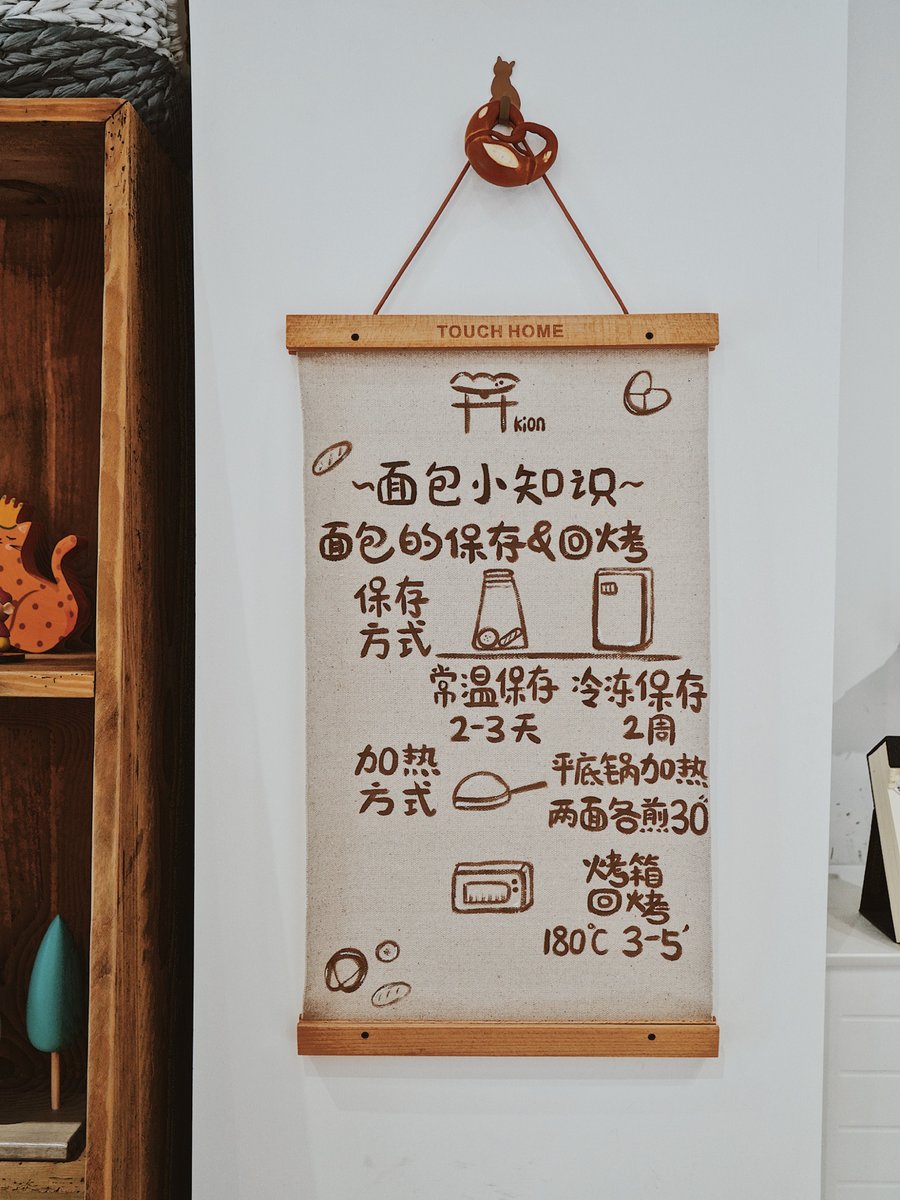 TOUCH HOME
kion
~面包小知识~
面包的保存&回烤
保存
方式
常温保存
2-3天
冷冻保存
2周
加热
方式
平底锅加热
两面各煎30"
烤箱
回烤
180℃ 3-5'